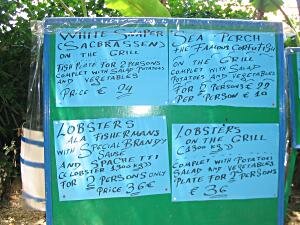 WHITE SNAPER
(SACBRASSEN)
ON THE GRILL
FISH PLATE FOR 2 PERSONS
COMPLET WITH SALAD POTATOES
AND VEGETABLES
PRICE € 24
SEA PERCH
THE FAMOUS CORFU FISH
ON THE GRILL
COMPLET WITH SALAD
POTATOES AND VEGETABLES
FOR 2 PERSONS € 22
PER PERSON € 10
LOBSTERS
ALA FISHERMANS
WITH SPECIAL BRANDY
SAUSE
AND SPAGHETTI
(LOBSTER 1300 KG)
FOR 2 PERSONS ONLY
PRICE 36 €
LOBSTERS
ON THE GRILL
(1300 KG)
COMPLET WITH POTATOES
SALAD AND VEGETABLES
PLATE FOR 2 PERSONS
€ 36